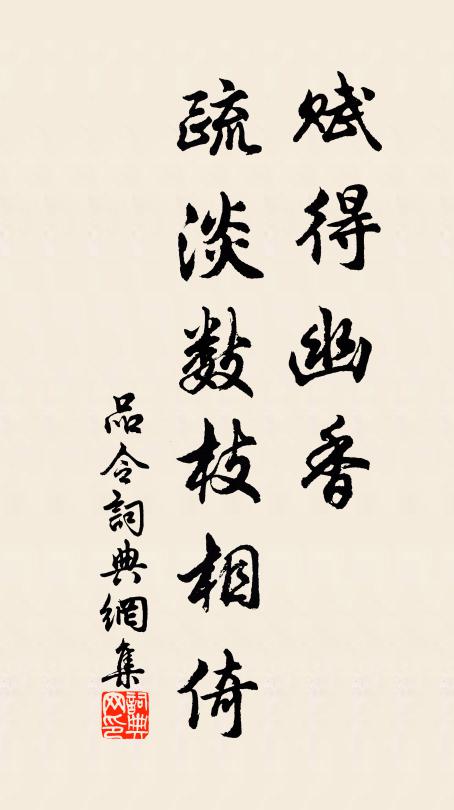 赋得幽香
疏淡数枝相倚
品令詞典網集
詞典网印